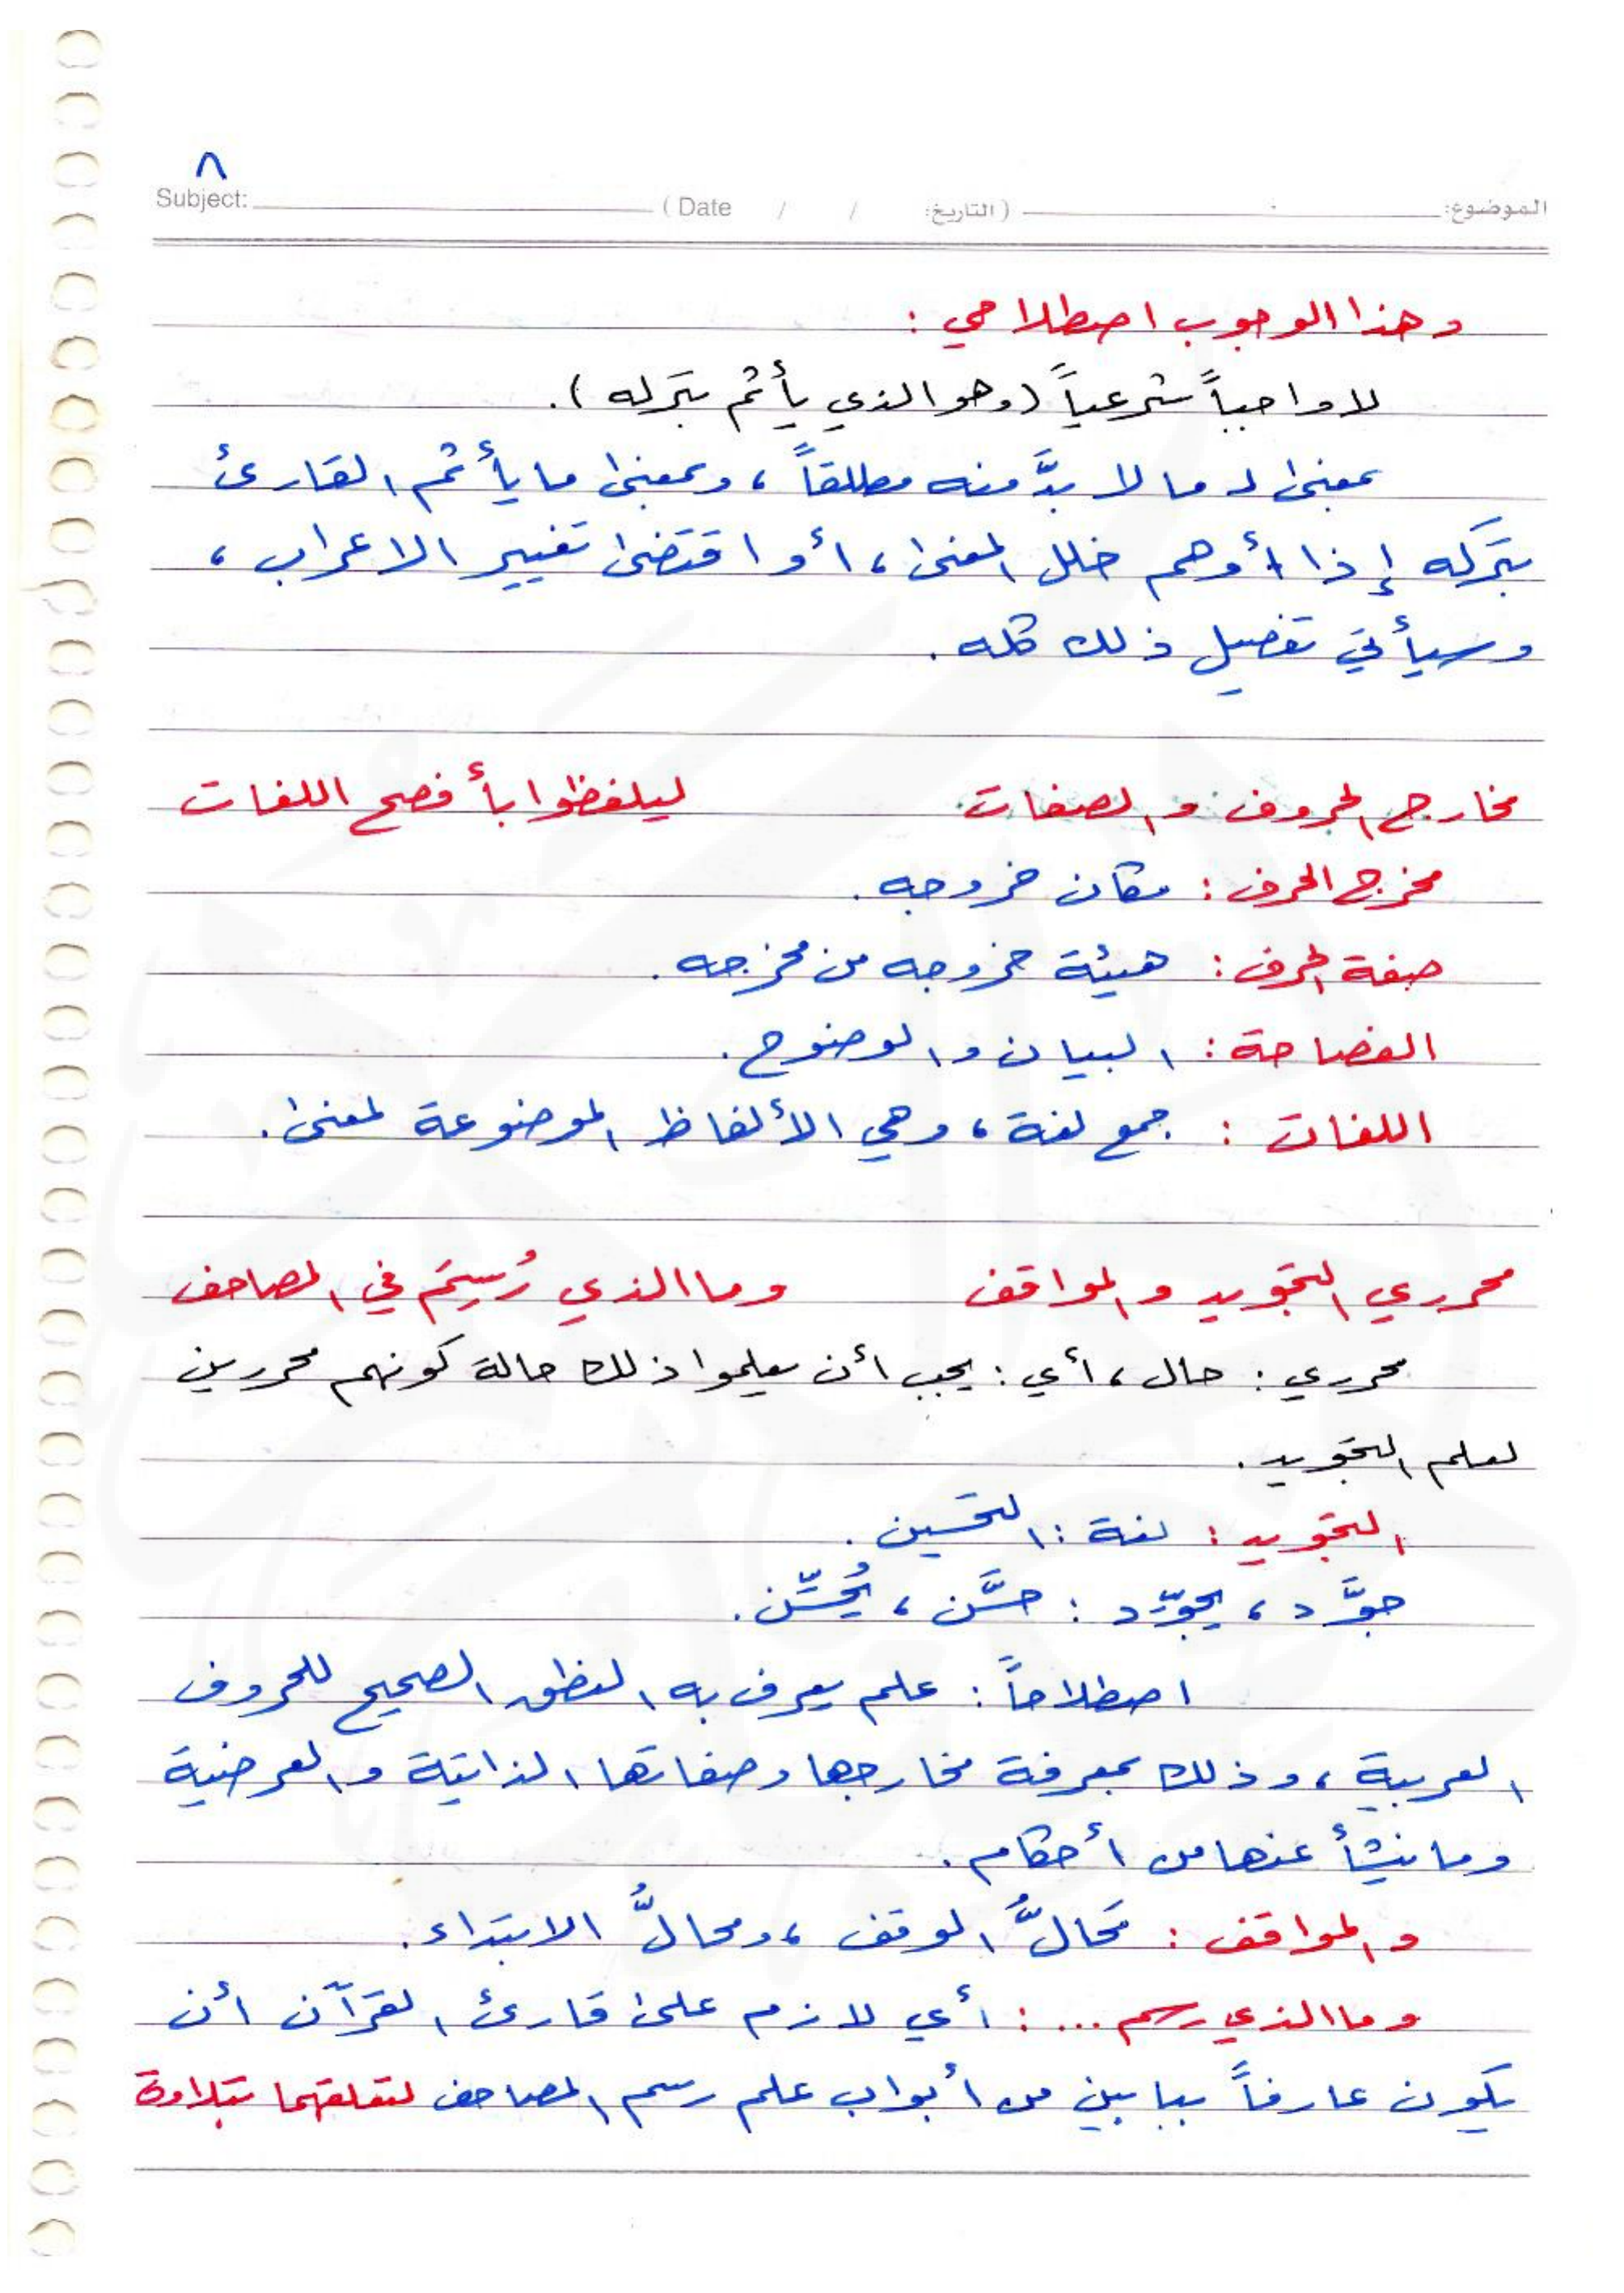 ٨
Subject: ( Date / / التاريخ: ) الموضوع:
وهذا الوجوب اصطلاحي :
لا واجباً شرعياً (وهو الذي يأثم بتركه).
بمعنى : ما لا بدَّ منه مطلقاً ، وبمعنى ما يأثم القارئ
بتركه إذا أوهم خلل المعنى ، أو اقتضى تغيير الاعراب ،
وسيأتي تفصيل ذلك كله .
مخارج الحروف والصفات ليلفظوا بأفصح اللغات
مخرج الحرف : مكان خروجه .
صفة الحرف : هيئة خروجه من مخرجه .
الفصاحة : البيان والوضوح .
اللغات : جمع لغة ، وهي الألفاظ الموضوعة لمعنى .
محرري التجويد والمواقف وما الذي رُسِمَ في المصاحف
محرري : حال ، أي : يجب أن يعلموا ذلك حالة كونهم محررين
لعلم التجويد .
التجويد : لغة : التحسين .
جوَّد ، يجوِّد : حسَّن ، يُحسِّن .
اصطلاحاً : علم يعرف به النطق الصحيح للحروف
العربية ، وذلك بمعرفة مخارجها وصفاتها الذاتية والعرضية
وما ينشأ عنها من أحكام .
والمواقف : مَحَالُّ الوقف ، ومحالُّ الابتداء .
وما الذي رسم ... : أي لازم على قارئ القرآن أن
يكون عارفاً ببابين من أبواب علم رسم المصاحف لتعلقهما بتلاوة